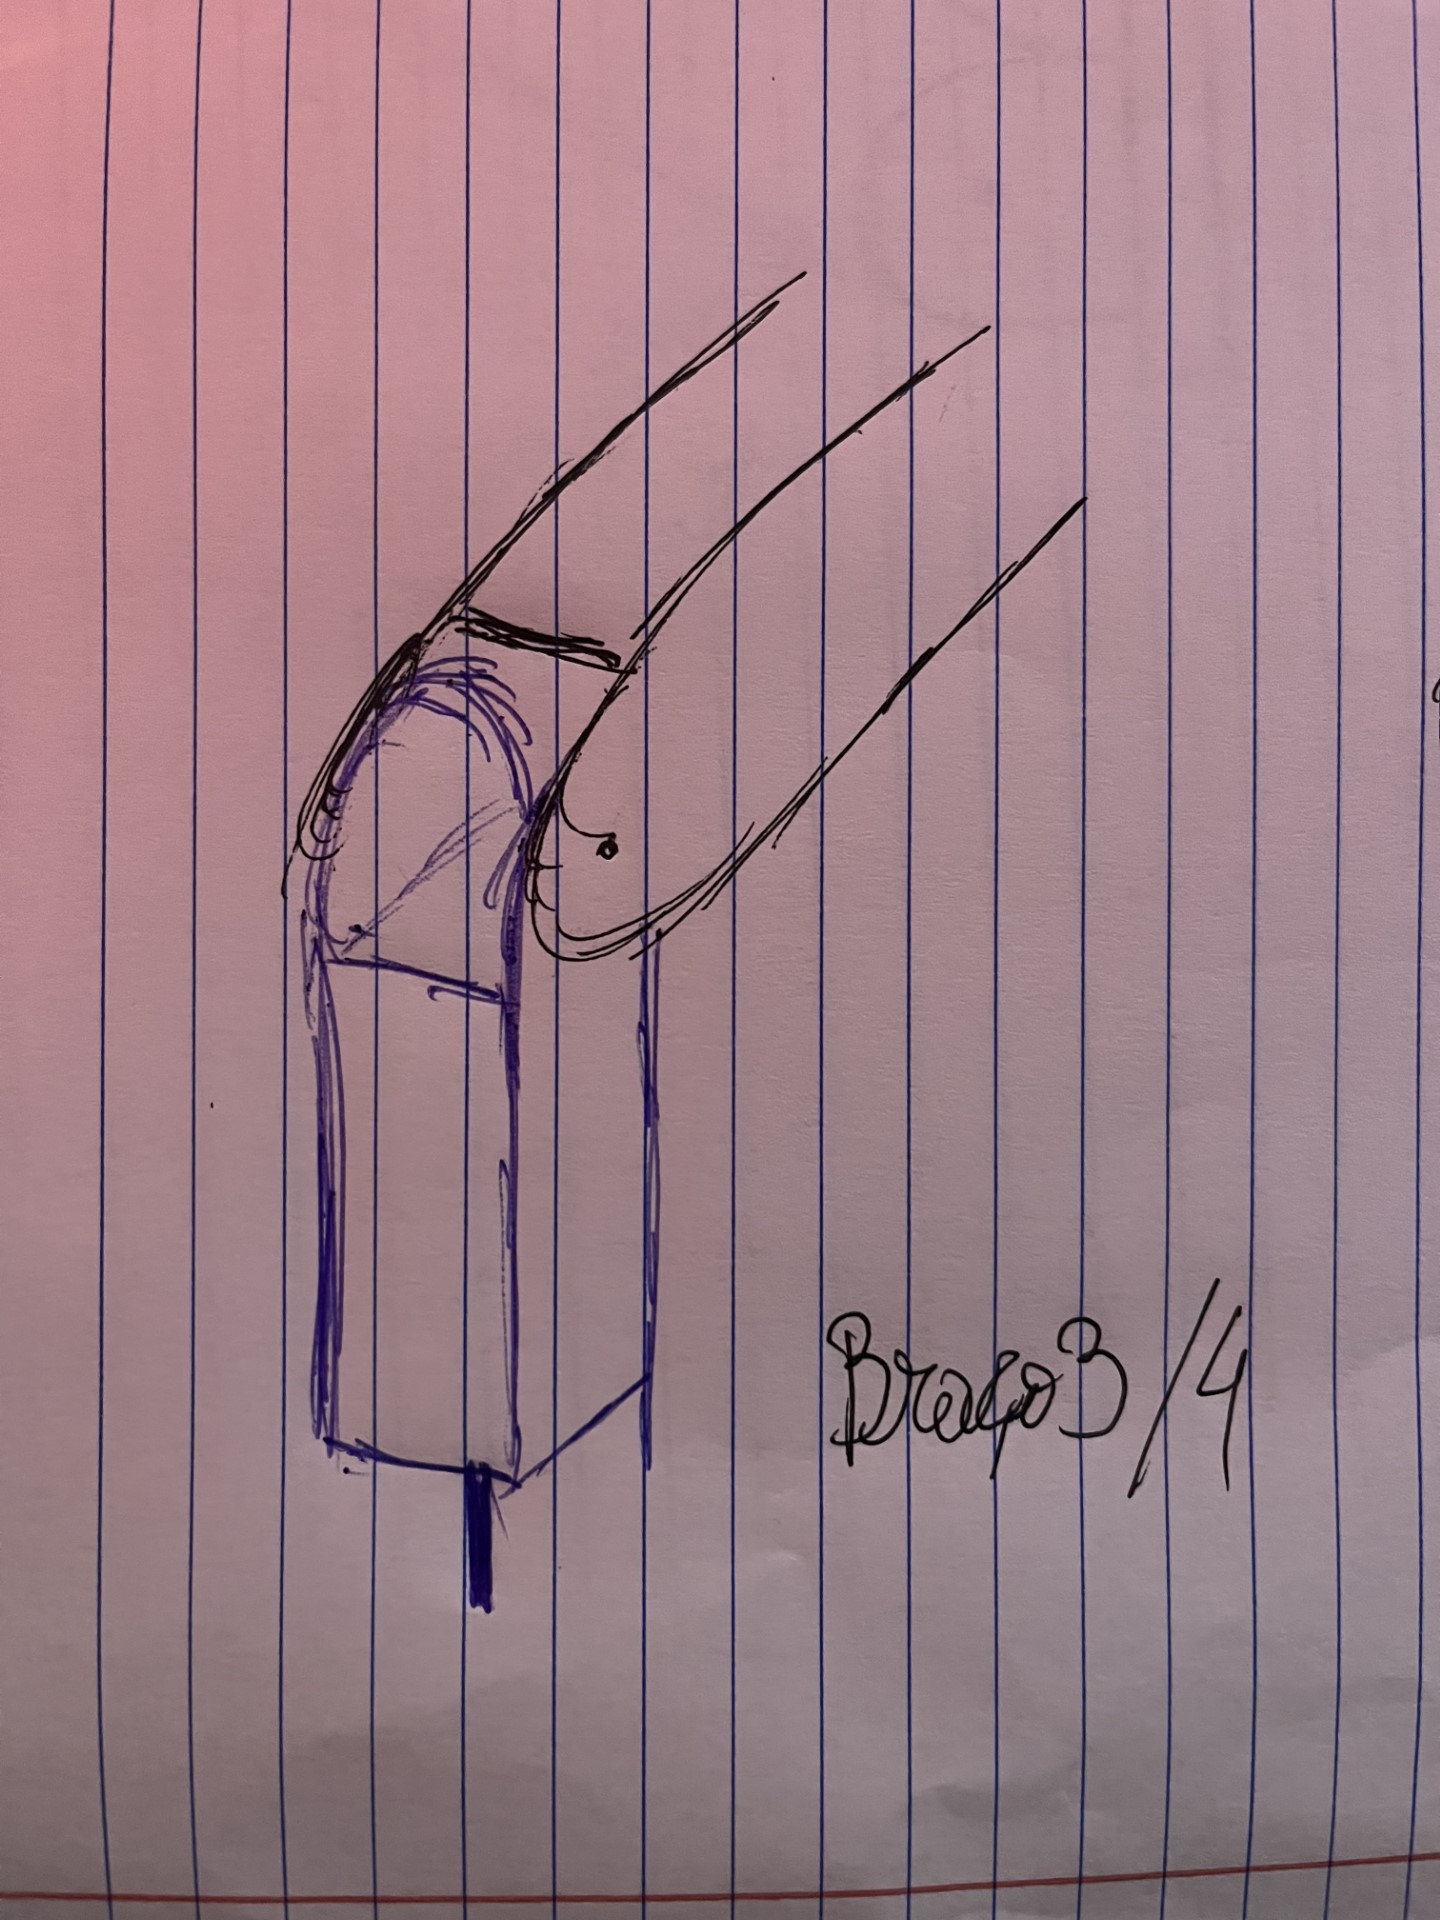 Braço 3/4